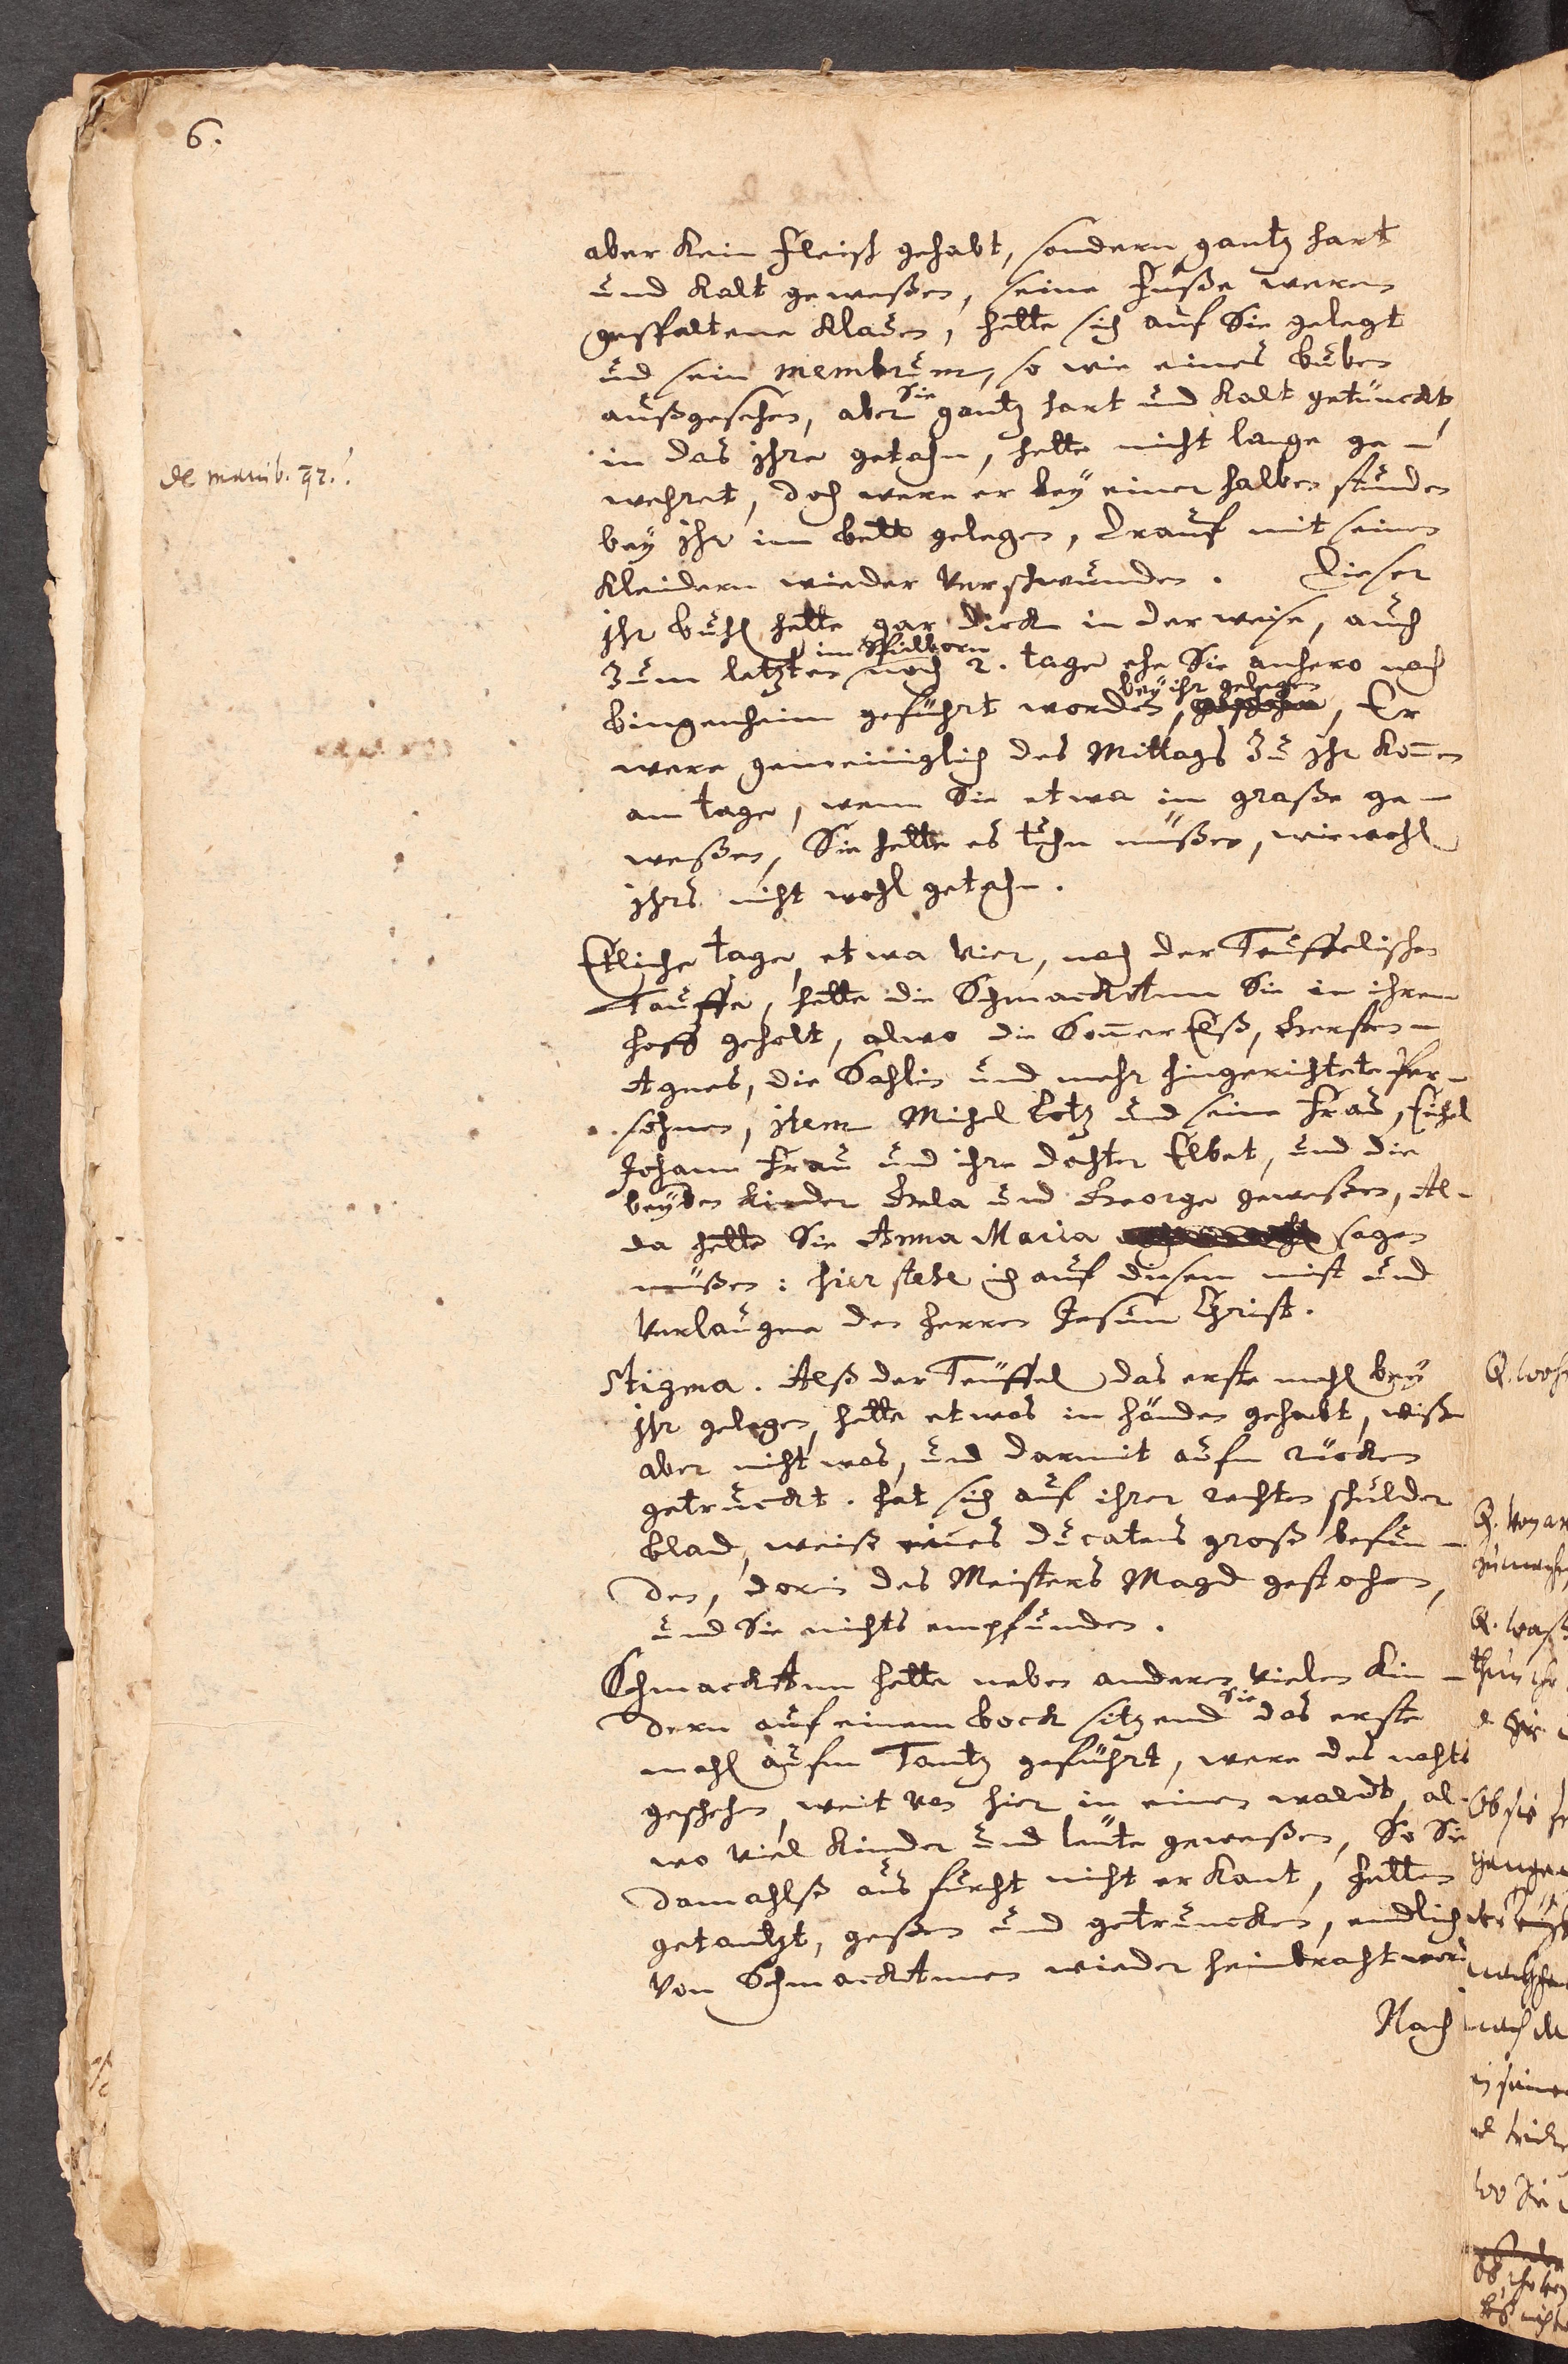 6.
aber kein fleisch gehabt, sondern gantz hart
und kalt geweßen, seine füße weren
gespaltene klauen, hette sich auf Sie gelegt
und sein membrum, so wie eines buben
Sie
außgesehen, aber gantz hart und kalt gedunckt,
in das ihre getahn, hette nicht lange ge-
de manib. qr.!
wehret, doch were er bey einer halben stunden
bey ihr im bett gelegen, drauf mit seinen
kleidern wieder verschwunden. Dieser
ihr buhl hette gar dick in der weise, auch
im Spielborn
zum letzten noch 2. tage ehe Sie anhero nach
bey ihr gelegen
bingenheim geführt worden, geschehen, Er
were gemeiniglich des Mittags zu ihr komen
am tage, wenn Sie etwa im graße ge-
weßen, Sie hette es tuhn müßen, wiewohl
ihrs nicht wohl getahn.
Etliche tage, etwa vier, nach der Teuffelischen
Tauffe, hette die SchmackAnn Sie in ihren
hoff geholt, alwo die Somer Elß, Gersten-
Agnes, die Sahlin und mehr hingerichtete Per-
sohnen, item Michel Lotz und seine Frau, Eichel
Johann Frau und ihre dochter Elbet, und die
beyden kinder Gela und George geweßen, Al-
da hette Sie Anna Maria sagen
müßen: hier stehe ich auf diesem mist und
verlaugne den herren Jesum Christ.
Stigma. Alß der Teuffel das erste mahl bey
ihr gelegen, hette etwas in händen gehabt, wiße
aber nicht was, und darmit aufm rücken
getruckt. hat sich auf ihrer rechten schulder
blad, weiß eines ducatens groß befun-
den, dorin des Meisters Magd gestochen,
und Sie nichts empfunden.
SchmackAnn hette neben anderen vielen kin-
Sie
dern auf einem bock sitzend das erste
mahl aufm Tantz geführt, were des nachts
geschehen, weit von hier in einen waldt, al-
wo viel kinder und leute geweßen, So Sie
damahlß aus furcht nicht erkant, hetten
getantzt, geßen und getruncken, endlich
von SchmackAnnen wieder heimbracht word
Nach